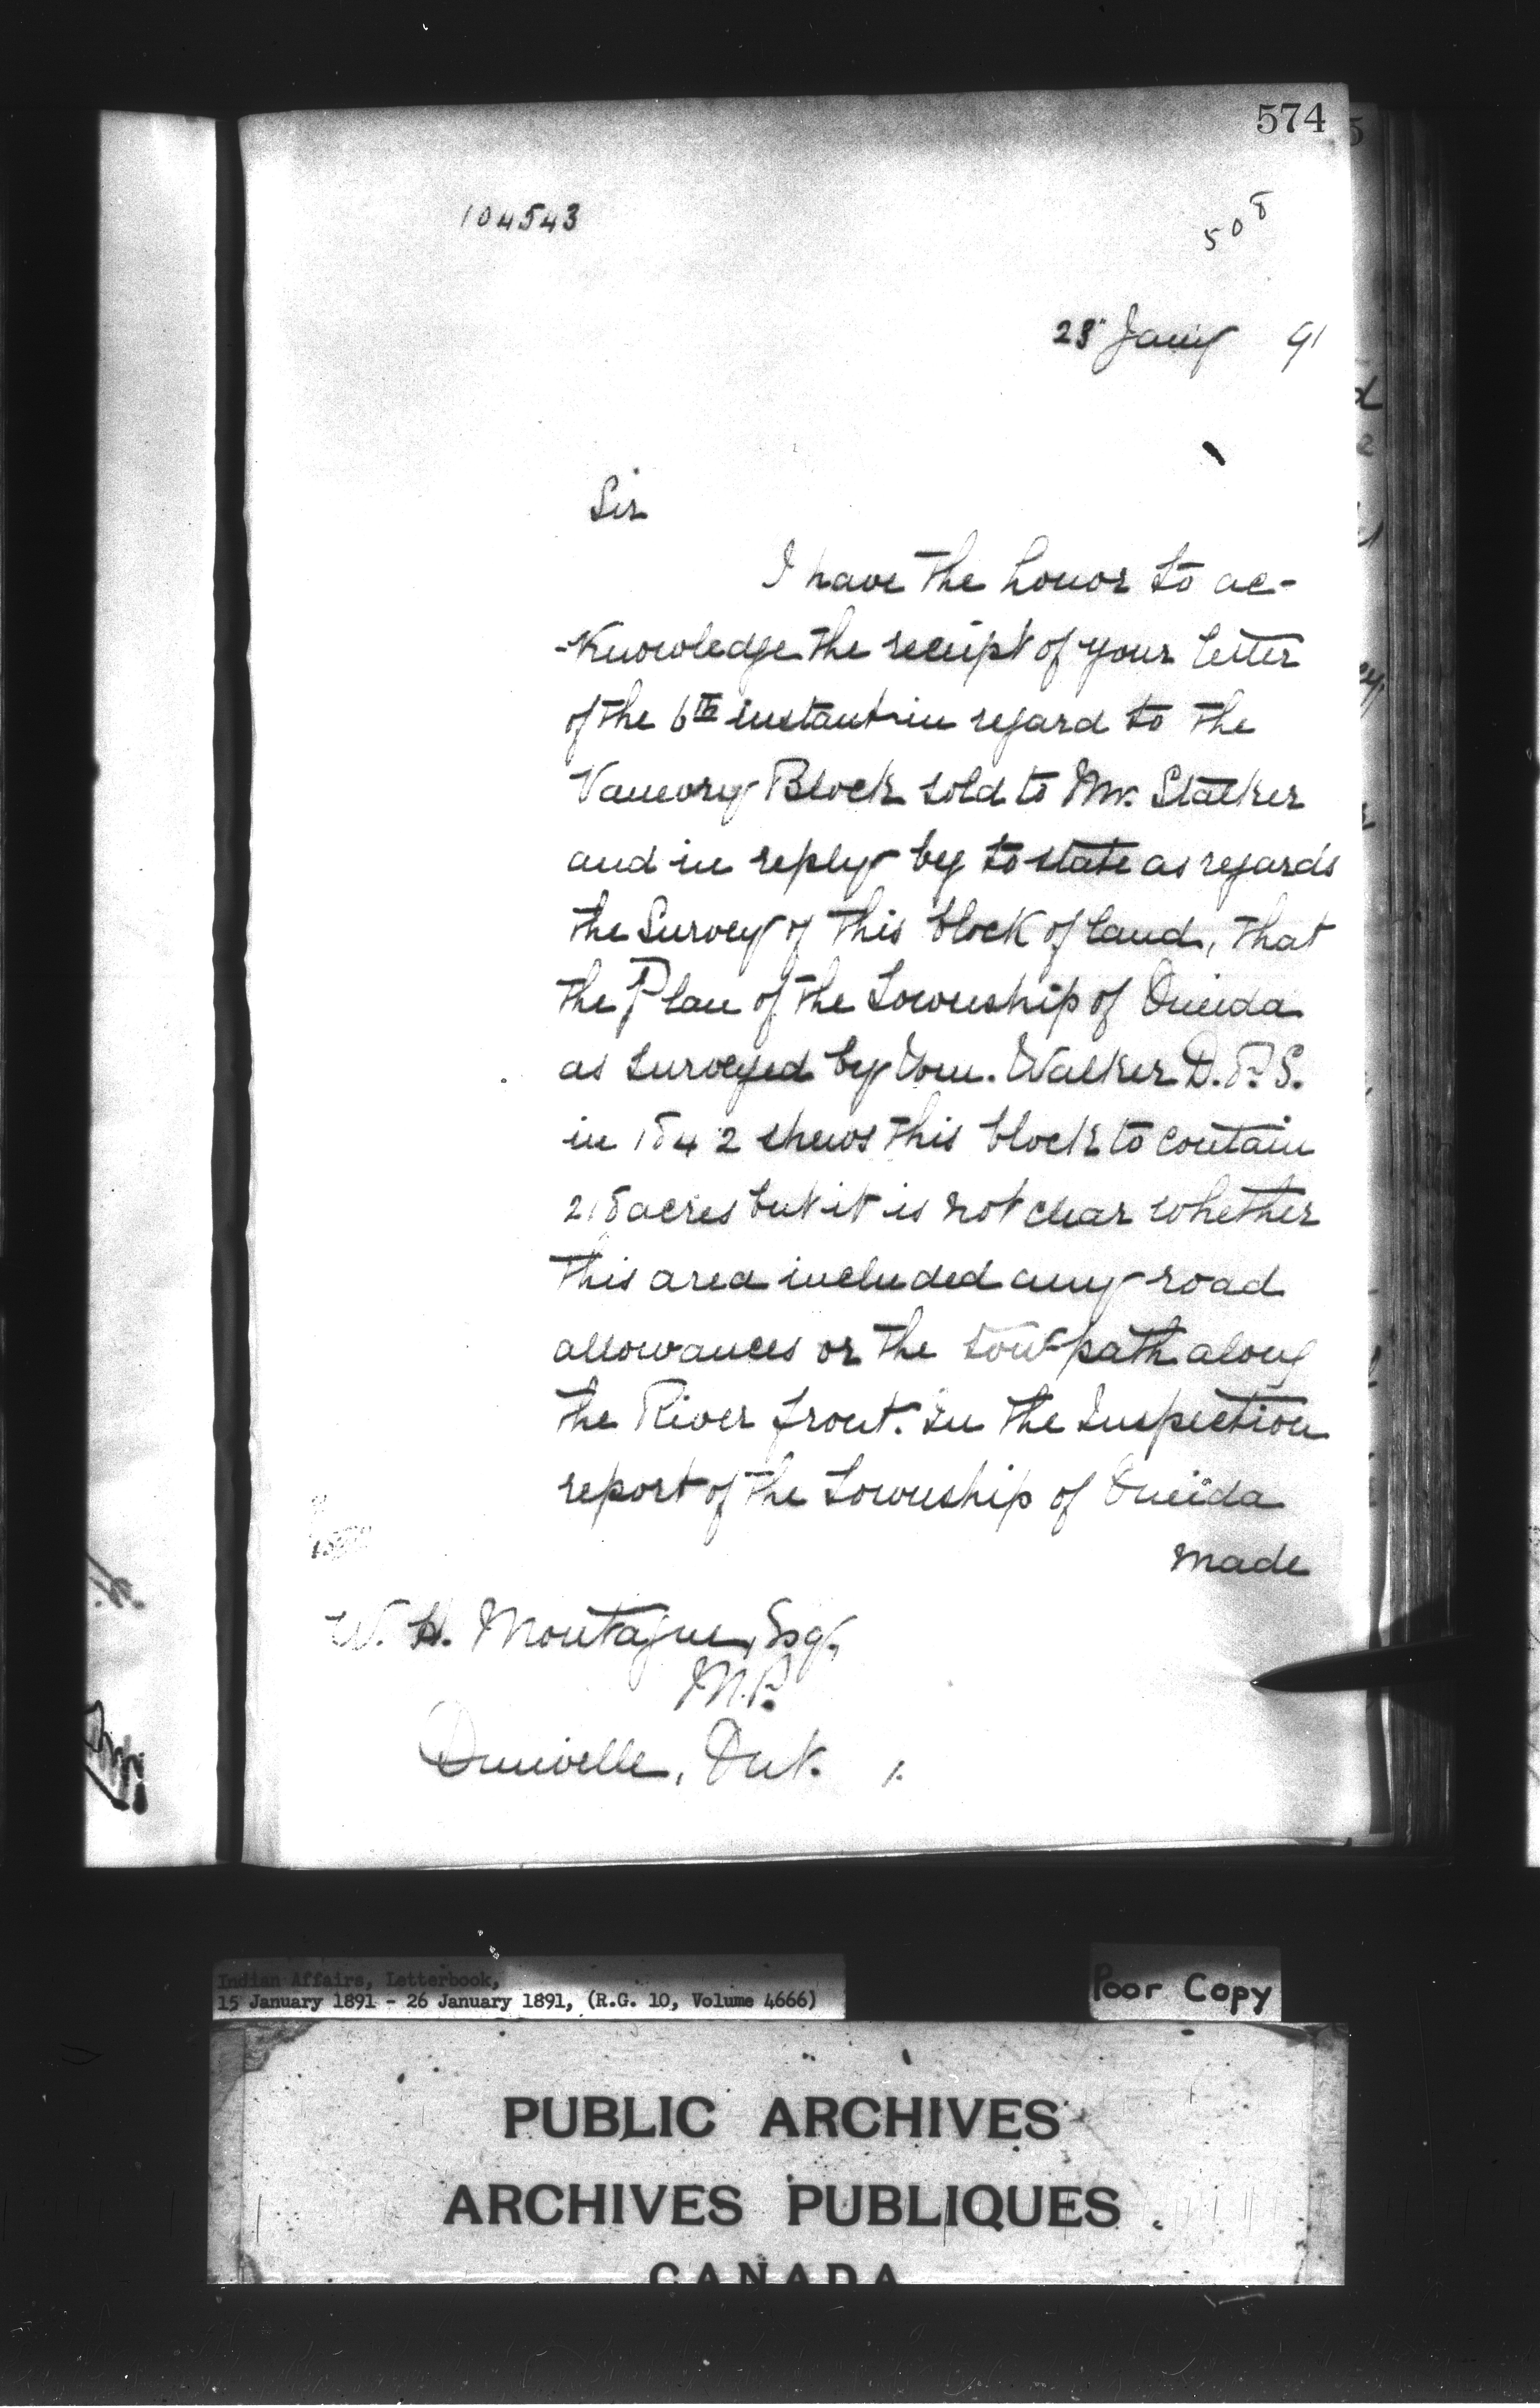 574
104543
508
23" Jany 91
Sir
I have the honor to ac-
-knowledge the receipt of your letter
of the 6th instant in regard to the
Block sold to Mr. Stalker
and in reply beg to state as regards
the Survey of this block of land, that
the Plan of the Township of Oneida
as surveyed by Wm. Walker D.P.S.
in 1842 shews this block to contain
218 acres but it is not clear whether
this area included any road
allowances or the tow-path along
the River front. In the Inspection
report of the Township of Oneida
made
W. H. Montague, Esq.,
M.P.
Dunnville, Ont.
Indian Affairs, Letterbook,
15 January 1891 - 26 January 1891, (R.G. 10, Volume 4666)
Poor Copy
PUBLIC ARCHIVES
ARCHIVES PUBLIQUES
CANADA